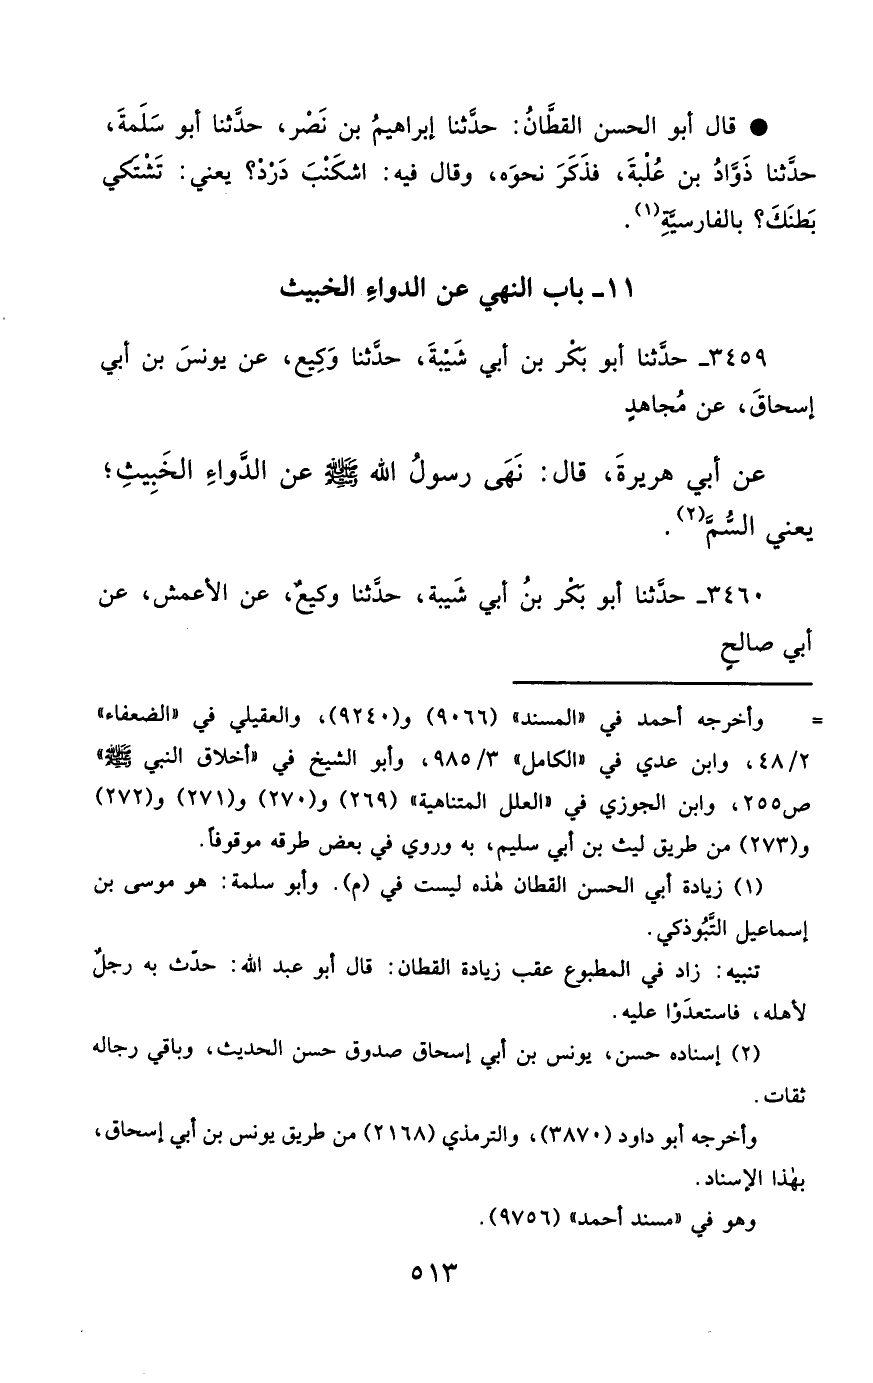 ● قال أبو الحسن القطَّانُ: حدَّثنا إبراهيمُ بن نَصْر، حدَّثنا أبو سَلَمةَ،
حدَّثنا ذَوَّادُ بن عُلْبةَ، فذَكَرَ نحوَه، وقال فيه: اشكَنْبَ دَرْدْ؟ يعني: تَشْتَكي
بَطنَكَ؟ بالفارسيَّةِ(١).
١١ـ باب النهي عن الدواءِ الخبيث
٣٤٥٩ـ حدَّثنا أبو بَكْر بن أبي شَيْبةَ، حدَّثنا وَكِيع، عن يونسَ بن أبي
إسحاقَ، عن مُجاهدٍ
عن أبي هريرةَ، قال: نَهَى رسولُ الله ﷺ عن الدَّواءِ الخَبِيثِ؛
يعني السُّمَّ(٢).
٣٤٦٠ـ حدَّثنا أبو بَكْر بنُ أبي شَيبة، حدَّثنا وكيعٌ، عن الأعمش، عن
أبي صالحٍ
= وأخرجه أحمد في «المسند» (٩٠٦٦) و(٩٢٤٠)، والعقيلي في «الضعفاء»
٤٨/٢، وابن عدي في «الكامل» ٩٨٥/٣، وأبو الشيخ في «أخلاق النبي ﷺ»
ص٢٥٥، وابن الجوزي في «العلل المتناهية» (٢٦٩) و(٢٧٠) و(٢٧١) و(٢٧٢)
و(٢٧٣) من طريق ليث بن أبي سليم، به وروي في بعض طرقه موقوفاً.
(١) زيادة أبي الحسن القطان هٰذه ليست في (م). وأبو سلمة: هو موسى بن
إسماعيل التَّبُوذكي.
تنبيه: زاد في المطبوع عقب زيادة القطان: قال أبو عبد الله: حدّث به رجلٌ
لأهله، فاستعدَوْا عليه.
(٢) إسناده حسن، يونس بن أبي إسحاق صدوق حسن الحديث، وباقي رجاله
ثقات.
وأخرجه أبو داود (٣٨٧٠)، والترمذي (٢١٦٨) من طريق يونس بن أبي إسحاق،
بهٰذا الإسناد.
وهو في «مسند أحمد» (٩٧٥٦).
٥١٣